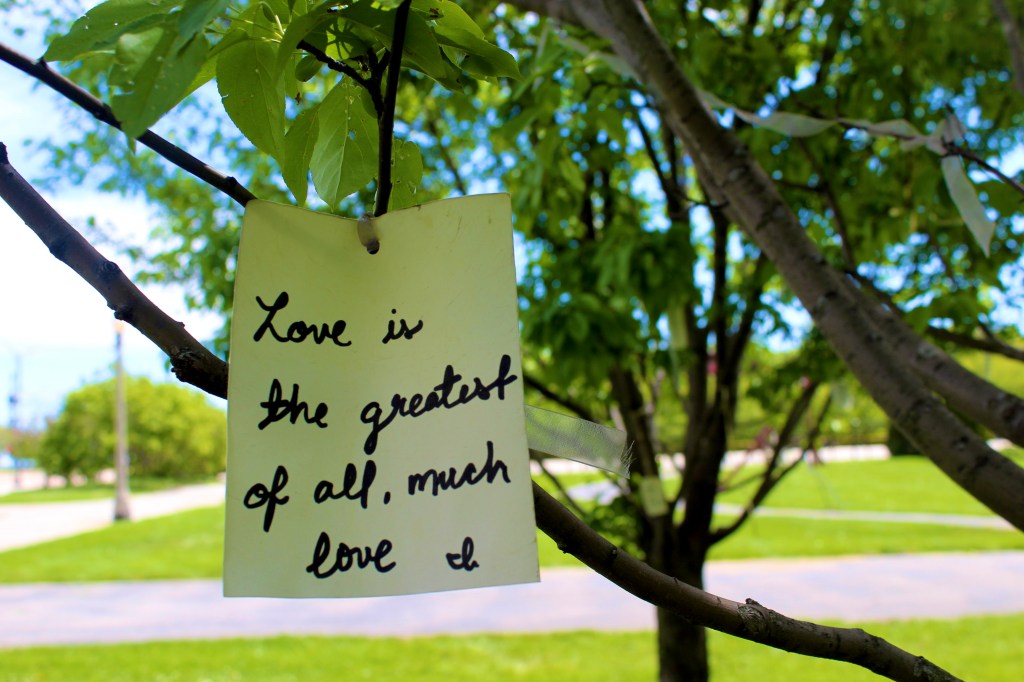 Love is
the greatest
of all, much
love